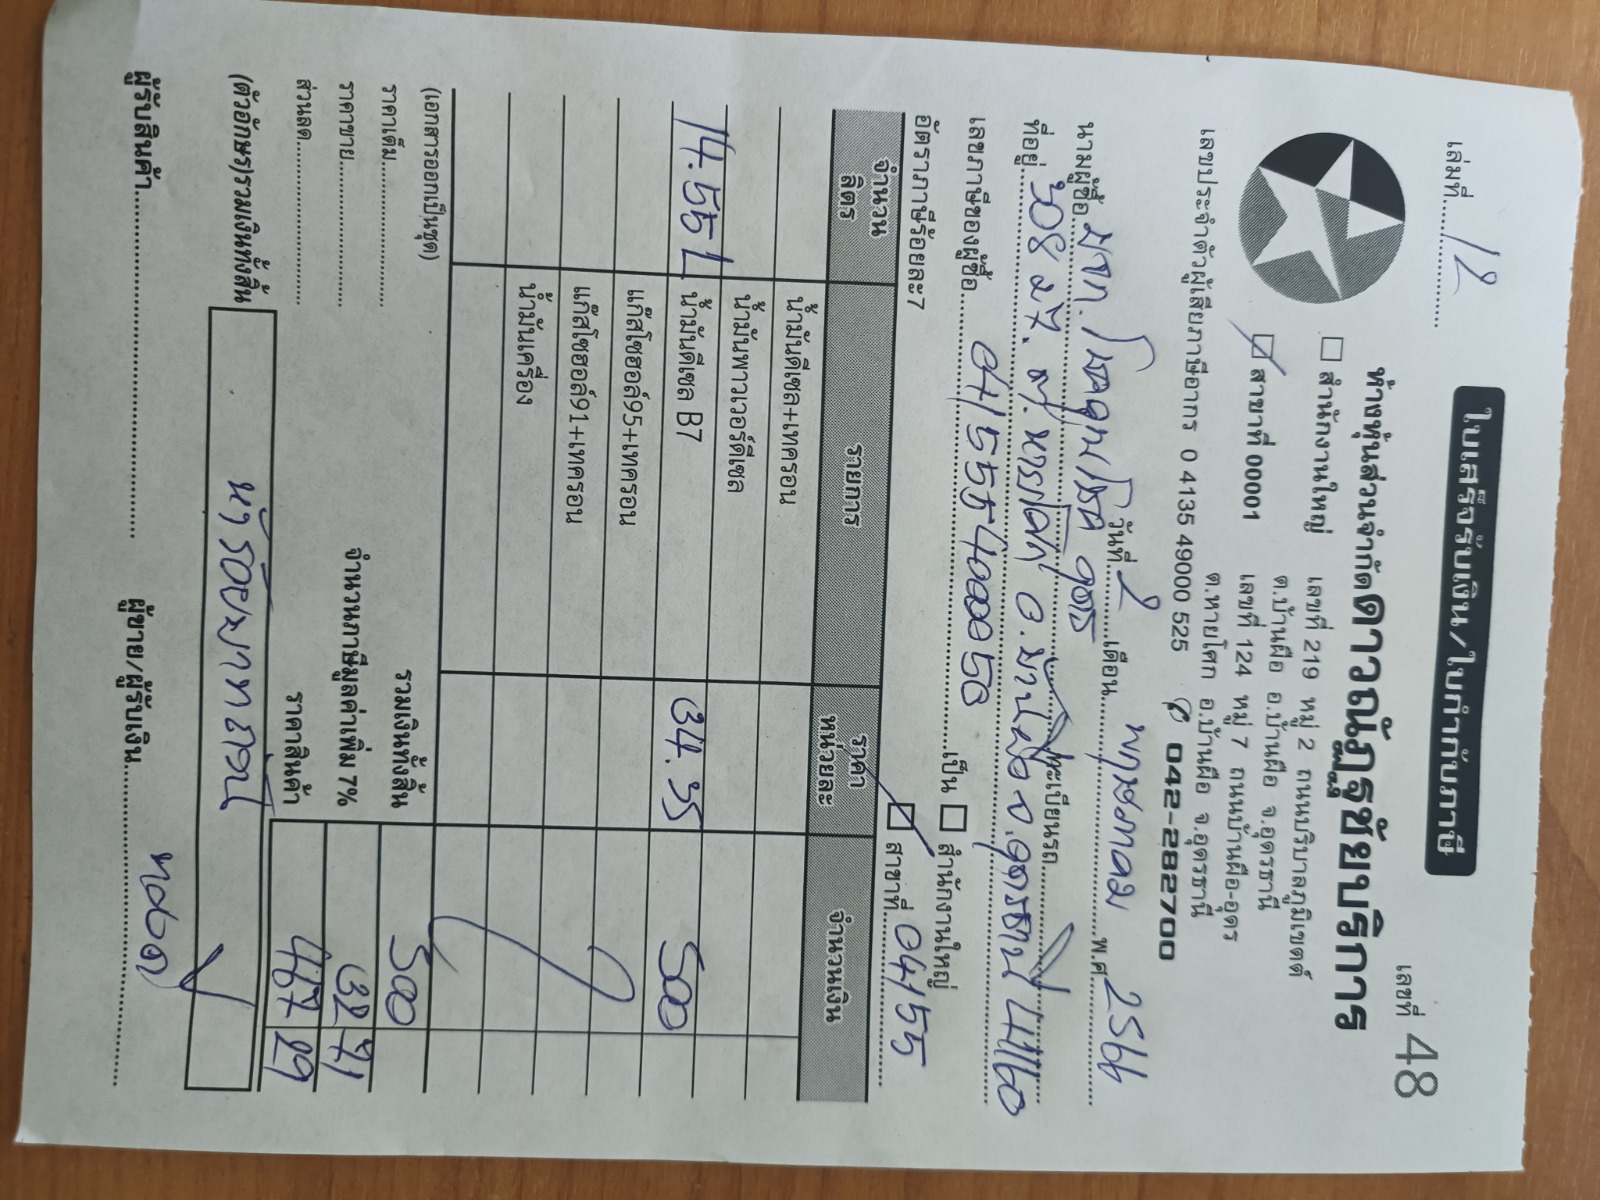 เล่มที่ 12
เลขที่ 48
ใบเสร็จรับเงิน/ใบกำกับภาษี
ห้างหุ้นส่วนจำกัดดาวณัฏฐชัยบริการ
สำนักงานใหญ่ เลขที่ 219 หมู่ 2 ถนนบริบาลภูมิเขตต์
ต.บ้านผือ อ.บ้านผือ จ.อุดรธานี
สาขาที่ 00001 เลขที่ 124 หมู่ 7 ถนนบ้านผือ-อุดร
ต.หายโศก อ.บ้านผือ จ.อุดรธานี
เลขประจำตัวผู้เสียภาษีอากร 0 4135 49000 525 042-282700
วันที่ 2 เดือน พฤษภาคม พ.ศ. 2566
นามผู้ซื้อ บจก. โชคอุดม
ที่อยู่ 308 ม.7 ต.หายโศก อ.บ้านผือ จ.อุดรธานี 41160
ทะเบียนรถ
เลขภาษีของผู้ซื้อ 0415558400050 เป็น สำนักงานใหญ่
อัตราภาษีร้อยละ7 สาขาที่ 04155
จำนวน ลิตร รายการ ราคา หน่วยละ จำนวนเงิน
น้ำมันดีเซล+เทครอน
น้ำมันพาวเวอร์ดีเซล
14.55 L น้ำมันดีเซล B7 34.35 500
แก๊สโซฮอล์95+เทครอน
แก๊สโซฮอล์91+เทครอน
น้ำมันเครื่อง
(เอกสารออกเป็นชุด)
ราคาเต็ม รวมเงินทั้งสิ้น 500
ราคาขาย จำนวนภาษีมูลค่าเพิ่ม 7% 32 71
ส่วนลด ราคาสินค้า 467 29
(ตัวอักษร)รวมเงินทั้งสิ้น ห้าร้อยบาทถ้วน
ผู้รับสินค้า ผู้ขาย/ผู้รับเงิน